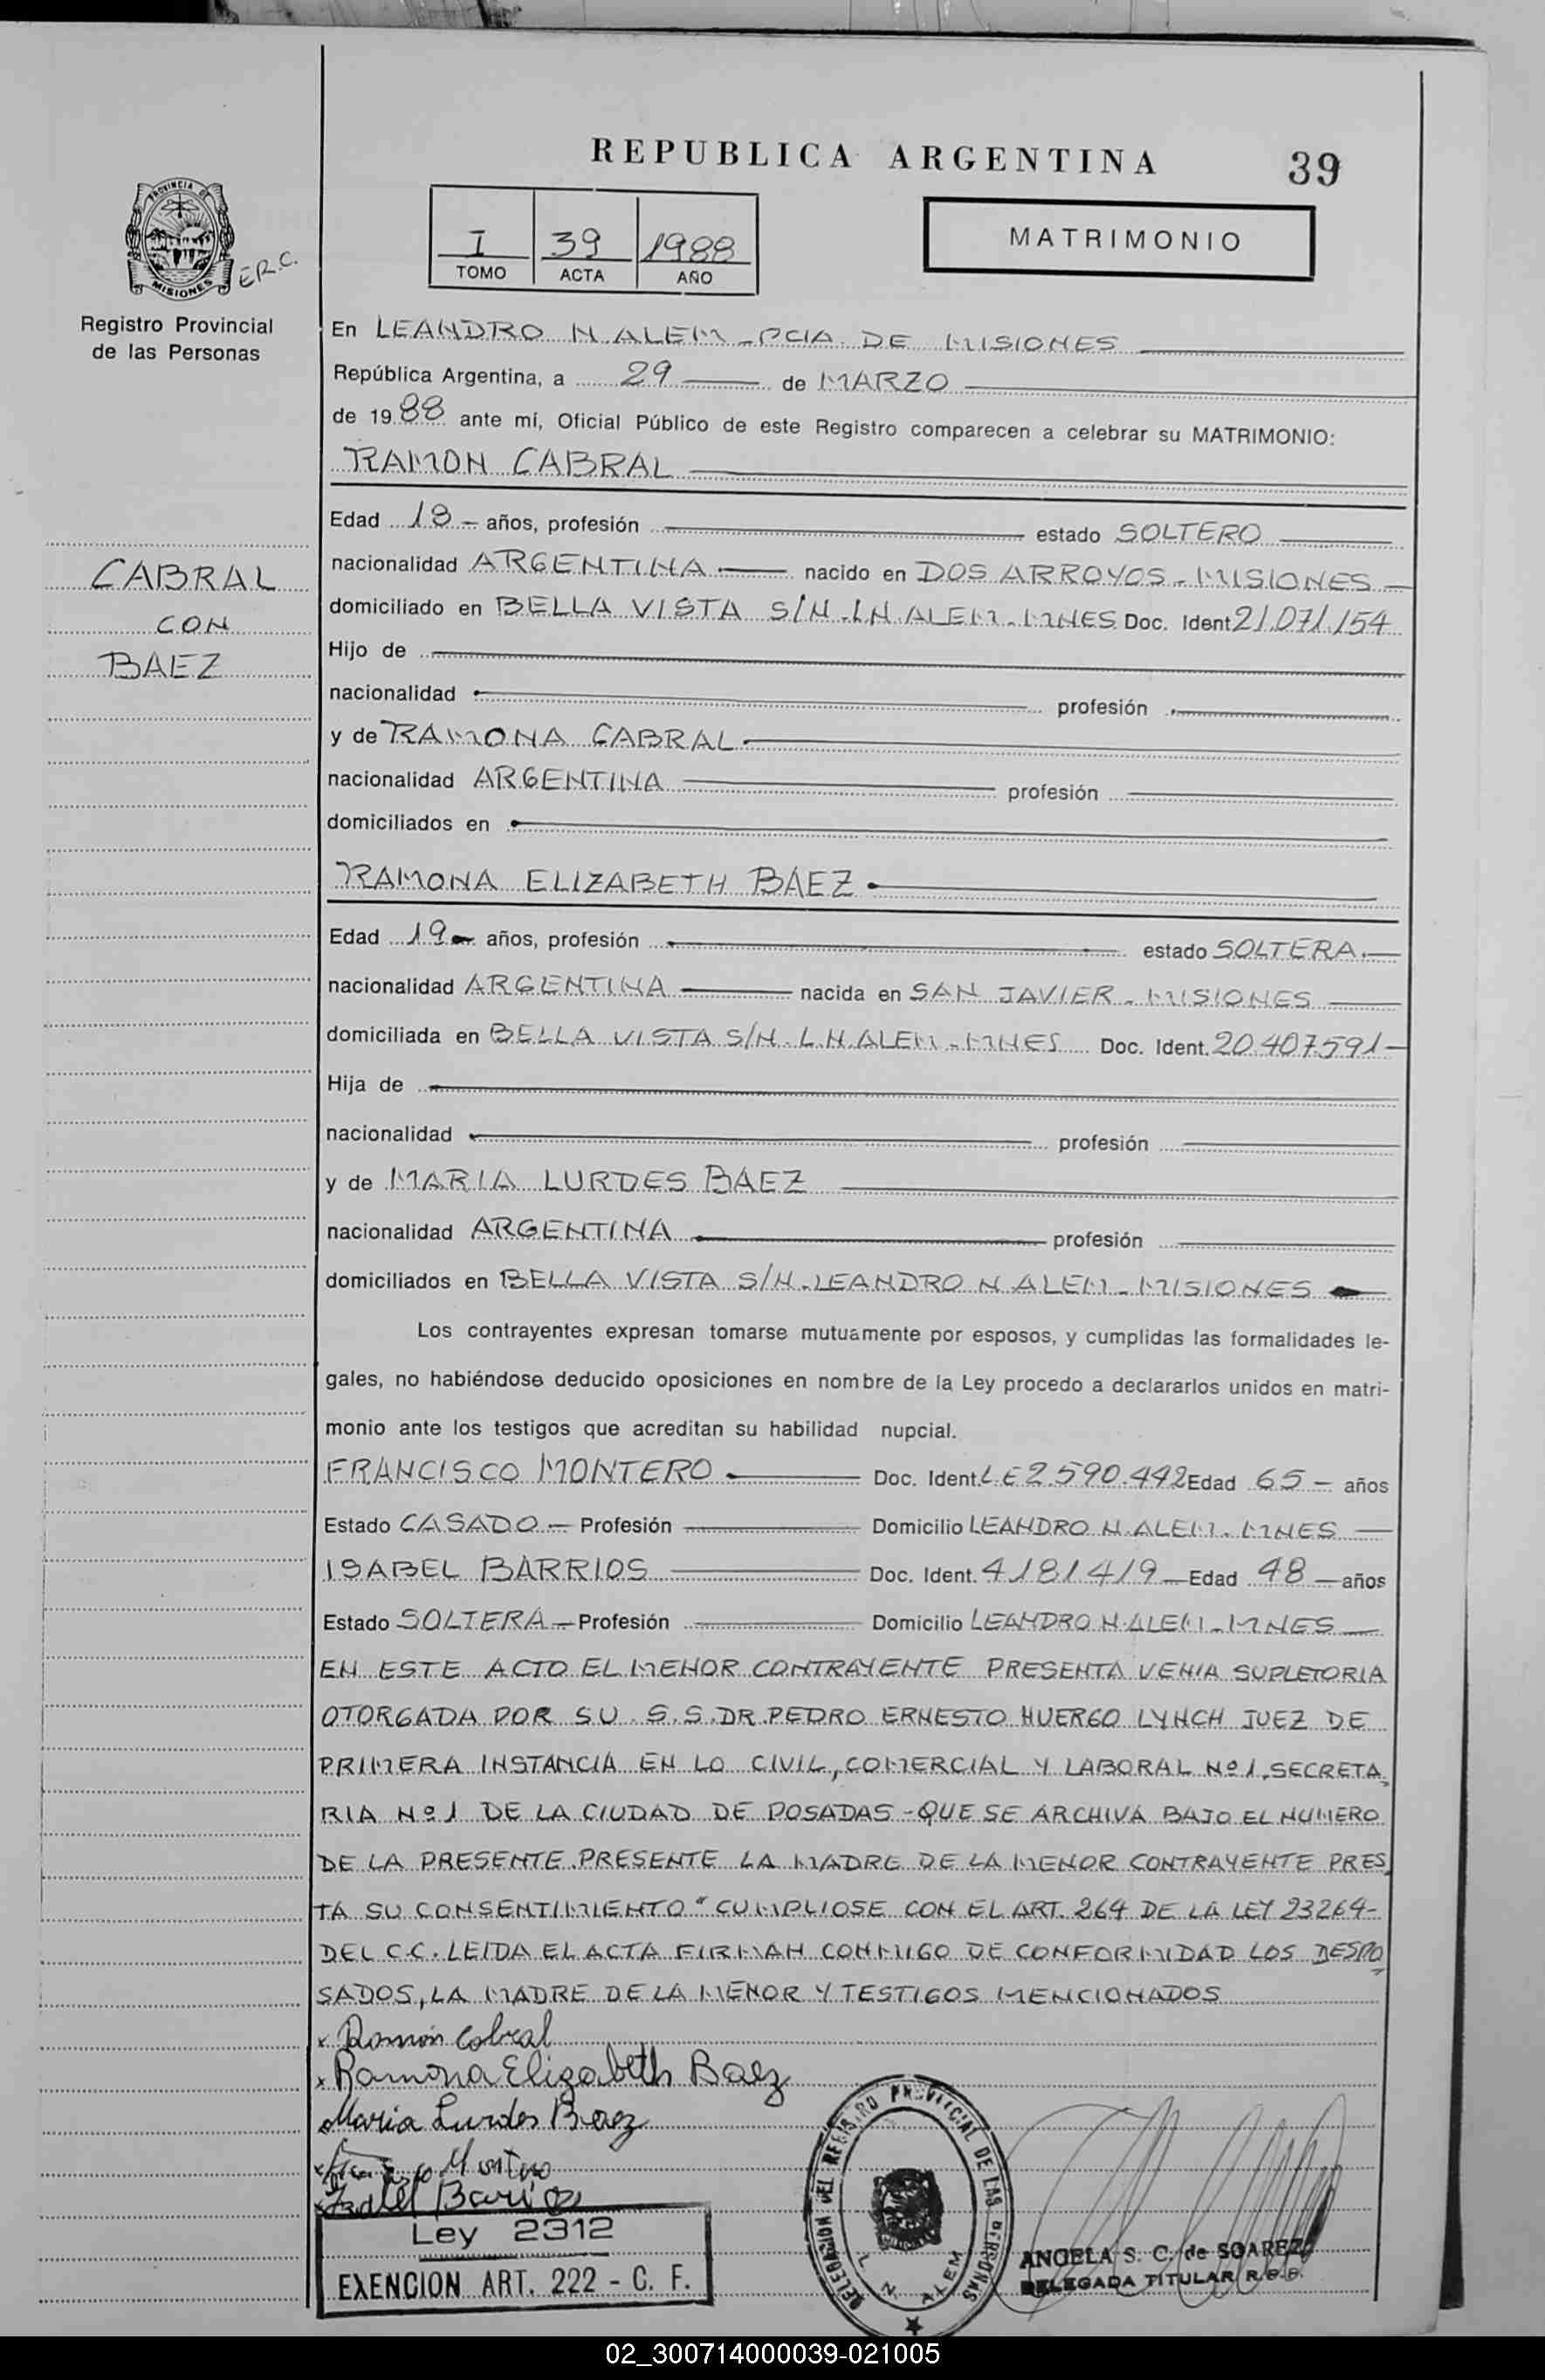 REPUBLICA ARGENTINA 39
PROVINCIA DE
MISIONES
E.R.C.
Registro Provincial
de las Personas
I 39 1988
TOMO ACTA AÑO
MATRIMONIO
En LEANDRO N. ALEM - PCIA. DE MISIONES
República Argentina, a 29 de MARZO
de 1988 ante mí, Oficial Público de este Registro comparecen a celebrar su MATRIMONIO:
RAMON CABRAL
CABRAL
CON
BAEZ
Edad 18 - años, profesión estado SOLTERO
nacionalidad ARGENTINA nacido en DOS ARROYOS - MISIONES
domiciliado en BELLA VISTA S/N - L.N. ALEM - MNES. Doc. Ident 21.071.154
Hijo de
nacionalidad profesión
y de RAMONA CABRAL
nacionalidad ARGENTINA profesión
domiciliados en
RAMONA ELIZABETH BAEZ
Edad 19 años, profesión estado SOLTERA.
nacionalidad ARGENTINA nacida en SAN JAVIER - MISIONES
domiciliada en BELLA VISTA S/N - L.N. ALEM - MNES Doc. Ident. 20.407.591
Hija de
nacionalidad profesión
y de MARIA LURDES BAEZ
nacionalidad ARGENTINA profesión
domiciliados en BELLA VISTA S/N - LEANDRO N. ALEM - MISIONES
Los contrayentes expresan tomarse mutuamente por esposos, y cumplidas las formalidades le-
gales, no habiéndose deducido oposiciones en nombre de la Ley procedo a declararlos unidos en matri-
monio ante los testigos que acreditan su habilidad nupcial.
FRANCISCO MONTERO Doc. Ident. L.E 2.590.442 Edad 65 - años
Estado CASADO - Profesión Domicilio LEANDRO N. ALEM - MNES
ISABEL BARRIOS Doc. Ident. 4181419 - Edad 48 - años
Estado SOLTERA - Profesión Domicilio LEANDRO N. ALEM - MNES
EN ESTE ACTO EL MENOR CONTRAYENTE PRESENTA VENIA SUPLETORIA
OTORGADA POR SU S.S. DR. PEDRO ERNESTO HUERGO LYNCH JUEZ DE
PRIMERA INSTANCIA EN LO CIVIL, COMERCIAL Y LABORAL Nº 1, SECRETA
RIA Nº 1 DE LA CIUDAD DE POSADAS - QUE SE ARCHIVA BAJO EL NUMERO
DE LA PRESENTE. PRESENTE LA MADRE DE LA MENOR CONTRAYENTE PRES
TA SU CONSENTIMIENTO " CUMPLIOSE CON EL ART. 264 DE LA LEY 23264-
DEL C.C. LEIDA EL ACTA FIRMAN CONMIGO DE CONFORMIDAD LOS DESPO
SADOS, LA MADRE DE LA MENOR Y TESTIGOS MENCIONADOS
x Ramón Cabral
x Ramona Elizabeth Baez
Maria Lurdes Baez
Montero
Barrios
Ley 2312
EXENCION ART. 222 - C. F.
DELEGACION DEL REGISTRO PROVINCIAL DE LAS PERSONAS
L. N. ALEM
ANGELA S. C. de SOAREZ
DELEGADA TITULAR R.P.P.
02_300714000039-021005